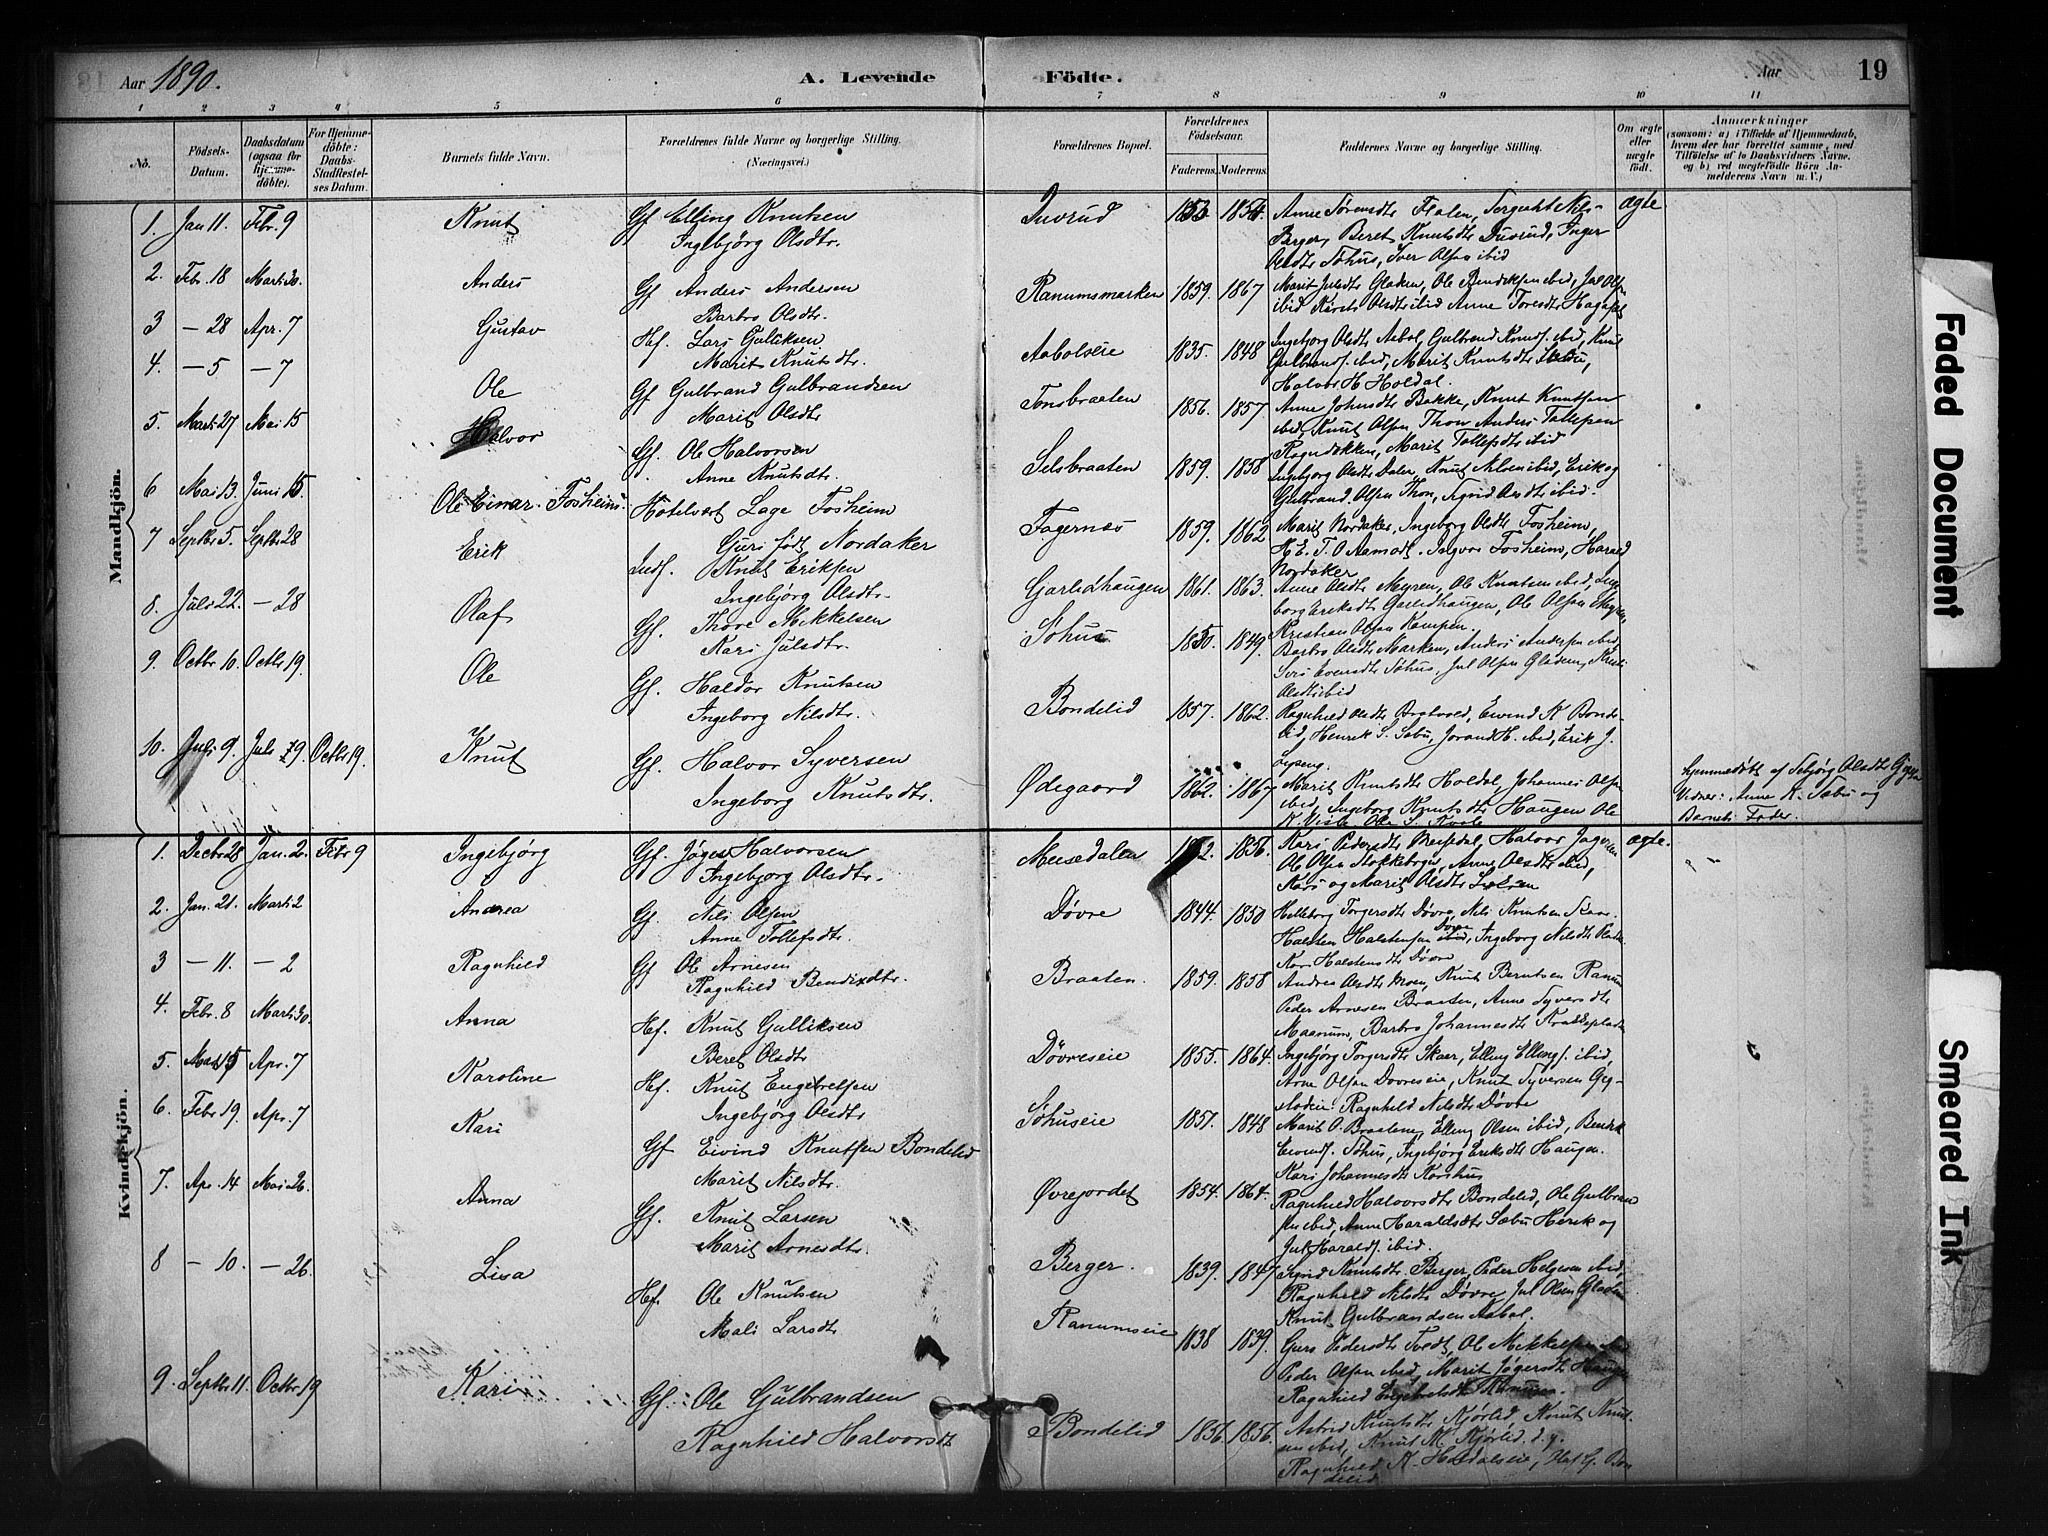 Aar 1890.
A. Levende Födte.
Aar 19
1 2 3 4 5 6 7 8 9 10 11
No.
Födsels-Datum.
Daabsdatum (ogsaa for hjemmedöbte).
For Hjemmedöbte: Daabs-Stadfæstelses Datum.
Barnets fulde Navn.
Forældrenes fulde Navne og borgerlige Stilling.
(Næringsvei.)
Forældrenes Bopæl.
Forældrenes Födselsaar.
Faderens. Moderens.
Faddernes Navne og borgerlige Stilling.
Om ægte eller uægte födt.
Anmærkninger
(saasom: a) i Tilfælde af Hjemmedaab, hvem der har forrettet samme, med Tilföielse af to Daabsvidners Navne, og b) ved uægtefödte Börn Anmelderens Navn m. V.)
Mandkjön.
1. Jan 11. Febr. 9 Knut Gf Elling Knutsen
Ingebjörg Olsdtr.
Duvrud 1853 1854. Anne Sørensdtr Flaten, Torgeir Nils-
Berger, Beret Knutsdtr Duvrud, Inger
Olsdtr Søhus, Iver Olsen ibid
ægte
2. Febr. 18 Marts 30. Anders Gf Anders Andersen
Barbro Olsdtr.
Ranumsmarken 1859. 1867 Marit Julsdtr Gladen, Ole Bendiksen ibid, Jul Olsen
ibid Kirsti Olsdtr ibid Anne Toresdtr
3 – 28 Apr. 7 Gustav Hf. Lars Gulliksen
Marit Knutsdtr.
Aabolseie 1835. 1848 Ingebjorg Olsdtr Aabol, Gulbrand Knuds. ibid, Knut
Gulbrands. ibid, Marit Knutsdtr
Halvor H Holdal.
4. – 5 – 7 Ole Gf Gulbrand Gulbrandsen
Marit Olsdtr
Tonsbraaten 1856. 1857 Anne Johnsdtr Bakke, Knut Knutsen
ibid, Knut Olsen Thon Anders Tollefsen
Rogndokken, Marit Tollefsdtr ibid
5. Marts 27 Mai 15 Halvor Gf. Ole Halvorsen
Anne Knutsdtr.
Selsbraaten 1859. 1858 Ingebjorg Olsdtr Dalen, Knut Nilsen ibid, Erik og
Gulbrand Olsen Thon, Sigrid Olsdtr ibid.
6 Mai 13. Juni 15. Ole Einar Fosheim Hotelvært Lage Fosheim
Guri født Nordaker
Fagernæs 1859. 1862 Marit Nordaker, Ingeborg Olsdtr Fosheim,
H. E. T. O Aamodt. Ingvar Fosheim, Harald
Nordaker
7 Septbr 5. Septbr 28 Erik Inds. Knut Eriksen
Ingebjörg Olsdtr.
Garlidhaugen 1861. 1863. Anne Olsdtr Myren, Ole Knutsen ibid, Inge-
borg Eriksdtr Garlidhaugen, Ole Olsen Myren
Kristian Olsen Kampen.
8. Juli 22. – 28 Olaf Gf. Thore Mikkelsen
Kari Julsdtr.
Søhus 1850. 1849. Barbro Olsdtr Marken, Anders Andersen ibid,
Siri Evensdtr Søhus, Jul Olsen Gladen, Kirsti
Olsdtr ibid
9. Octbr 10. Octbr 19. Ole Gf. Haldor Knutsen
Ingeborg Nilsdtr.
Bondelid 1857. 1862. Ragnhild Olsdtr Bratvold, Eivind K Bonde-
lid, Henrik S. Sæbu, Jorand H. ibid, Erik J.
10. Juli 9. Juli 29. Octbr 19. Knut Gf. Halvor Syversen
Ingeborg Knutsdtr.
Ødegaard 1862. 1867 Marit Knutsdtr Holdal Johannes Olsen
ibid, Ingeborg Knutsdtr Haugen Ole
K. Viste Ole S. Kvale
hjemmedøbt af Sebjørg Olsdtr
Vidner: Anne K. Sæbu og
Barnets Fader.
Kvindekjön.
1. Decbr 28 Jan. 2. Febr 9 Ingebjörg Gf. Jøger Halvorsen
Ingebjorg Olsdtr.
Meesedalen 1856. Kari Pedersdtr Meesedal, Halvor Jøgersen
Ole Olsen Stokkebryn, Anne Olsdtr ibid,
Kari og Marit Olsdtr
ægte.
2. Jan. 21. Marts 2 Andrea Gf. Nils Olsen
Anne Tollefsdtr.
Døvre 1844. 1850 Helleborg Torgersdtr Døvre, Nils Knutsen Skaar
Halsten Halstensen ibid, Ingeborg Nilsdtr
Kari Halstensdtr Døvre
3 – 11. – 2 Ragnhild Gf Ole Arnesen
Ragnhild Bendixdtr.
Braaten. 1859. 1858 Andrea Olsdtr Moen, Knut Berntsen Ranum
Peder Arnesen Braaten, Anne Syversdtr
Maanum, Barbro Johannesdtr
4. Febr. 8 Marts 30. Anna Hf. Knut Gulliksen
Beret Olsdtr
Døvreseie 1855. 1864. Ingebjörg Torgersdtr Skaar, Elling Ellings. ibid,
Arne Olsen Dovreseie, Knut Syversen
Ragnhild Nilsdtr Døvre
5. Marts 15 Apr. 7 Karoline Hf. Knut Engebretsen
Ingebjörg Olsdtr
Søhuseie 1851. 1848 Marit O. Braaten, Elling Olsen ibid, Bendik
Eivends. Søhus, Ingebjörg Eriksdtr Haugen.
Kari Johannesdtr
6. Febr 19. Apr. 7 Kari Gf Eivind Knutsen Bondelid
Marit Nilsdtr.
Øvrejordet 1854. 1864. Ragnhild Halvorsdtr Bondelid, Ole Gulbran-
sen ibid, Anne Haraldsdtr Sæbu Henrik og
Jul Haralds. ibid.
7. Apr. 14 Mai 26. Anna Gf. Knut Larsen
Marit Arnesdtr.
Berger. 1839. 1847 Sigrid Knutsdtr Berger, Peder Helgesen ibid,
Ragnhild Nilsdtr Døvre, Jul Olsen Gladen
Knut Gulbrandsen Aabol.
8 – 10. – 26. Lisa Hf. Ole Knutsen
Mali Larsdtr
Ranumseie 1838 1839. Guro Pedersdtr Tvedt, Ole Mikkelsen
Peder Olsen ibid, Marit Jøgersdtr Haugen
Ragnhild Engebretsdtr
9. Septbr 11. Octbr 19 Kari Gf. Ole Gulbrandsen
Ragnhild Halvorsdtr
Bondelid 1836. 1856. Astrid Knutsdtr Kjørlid, Knut Knut-
sen ibid, Knut M. Kjørlid. d. y.
Ragnhild K. Holdalseie, Olaf G. Bon-
delid
Faded Document
Smeared Ink